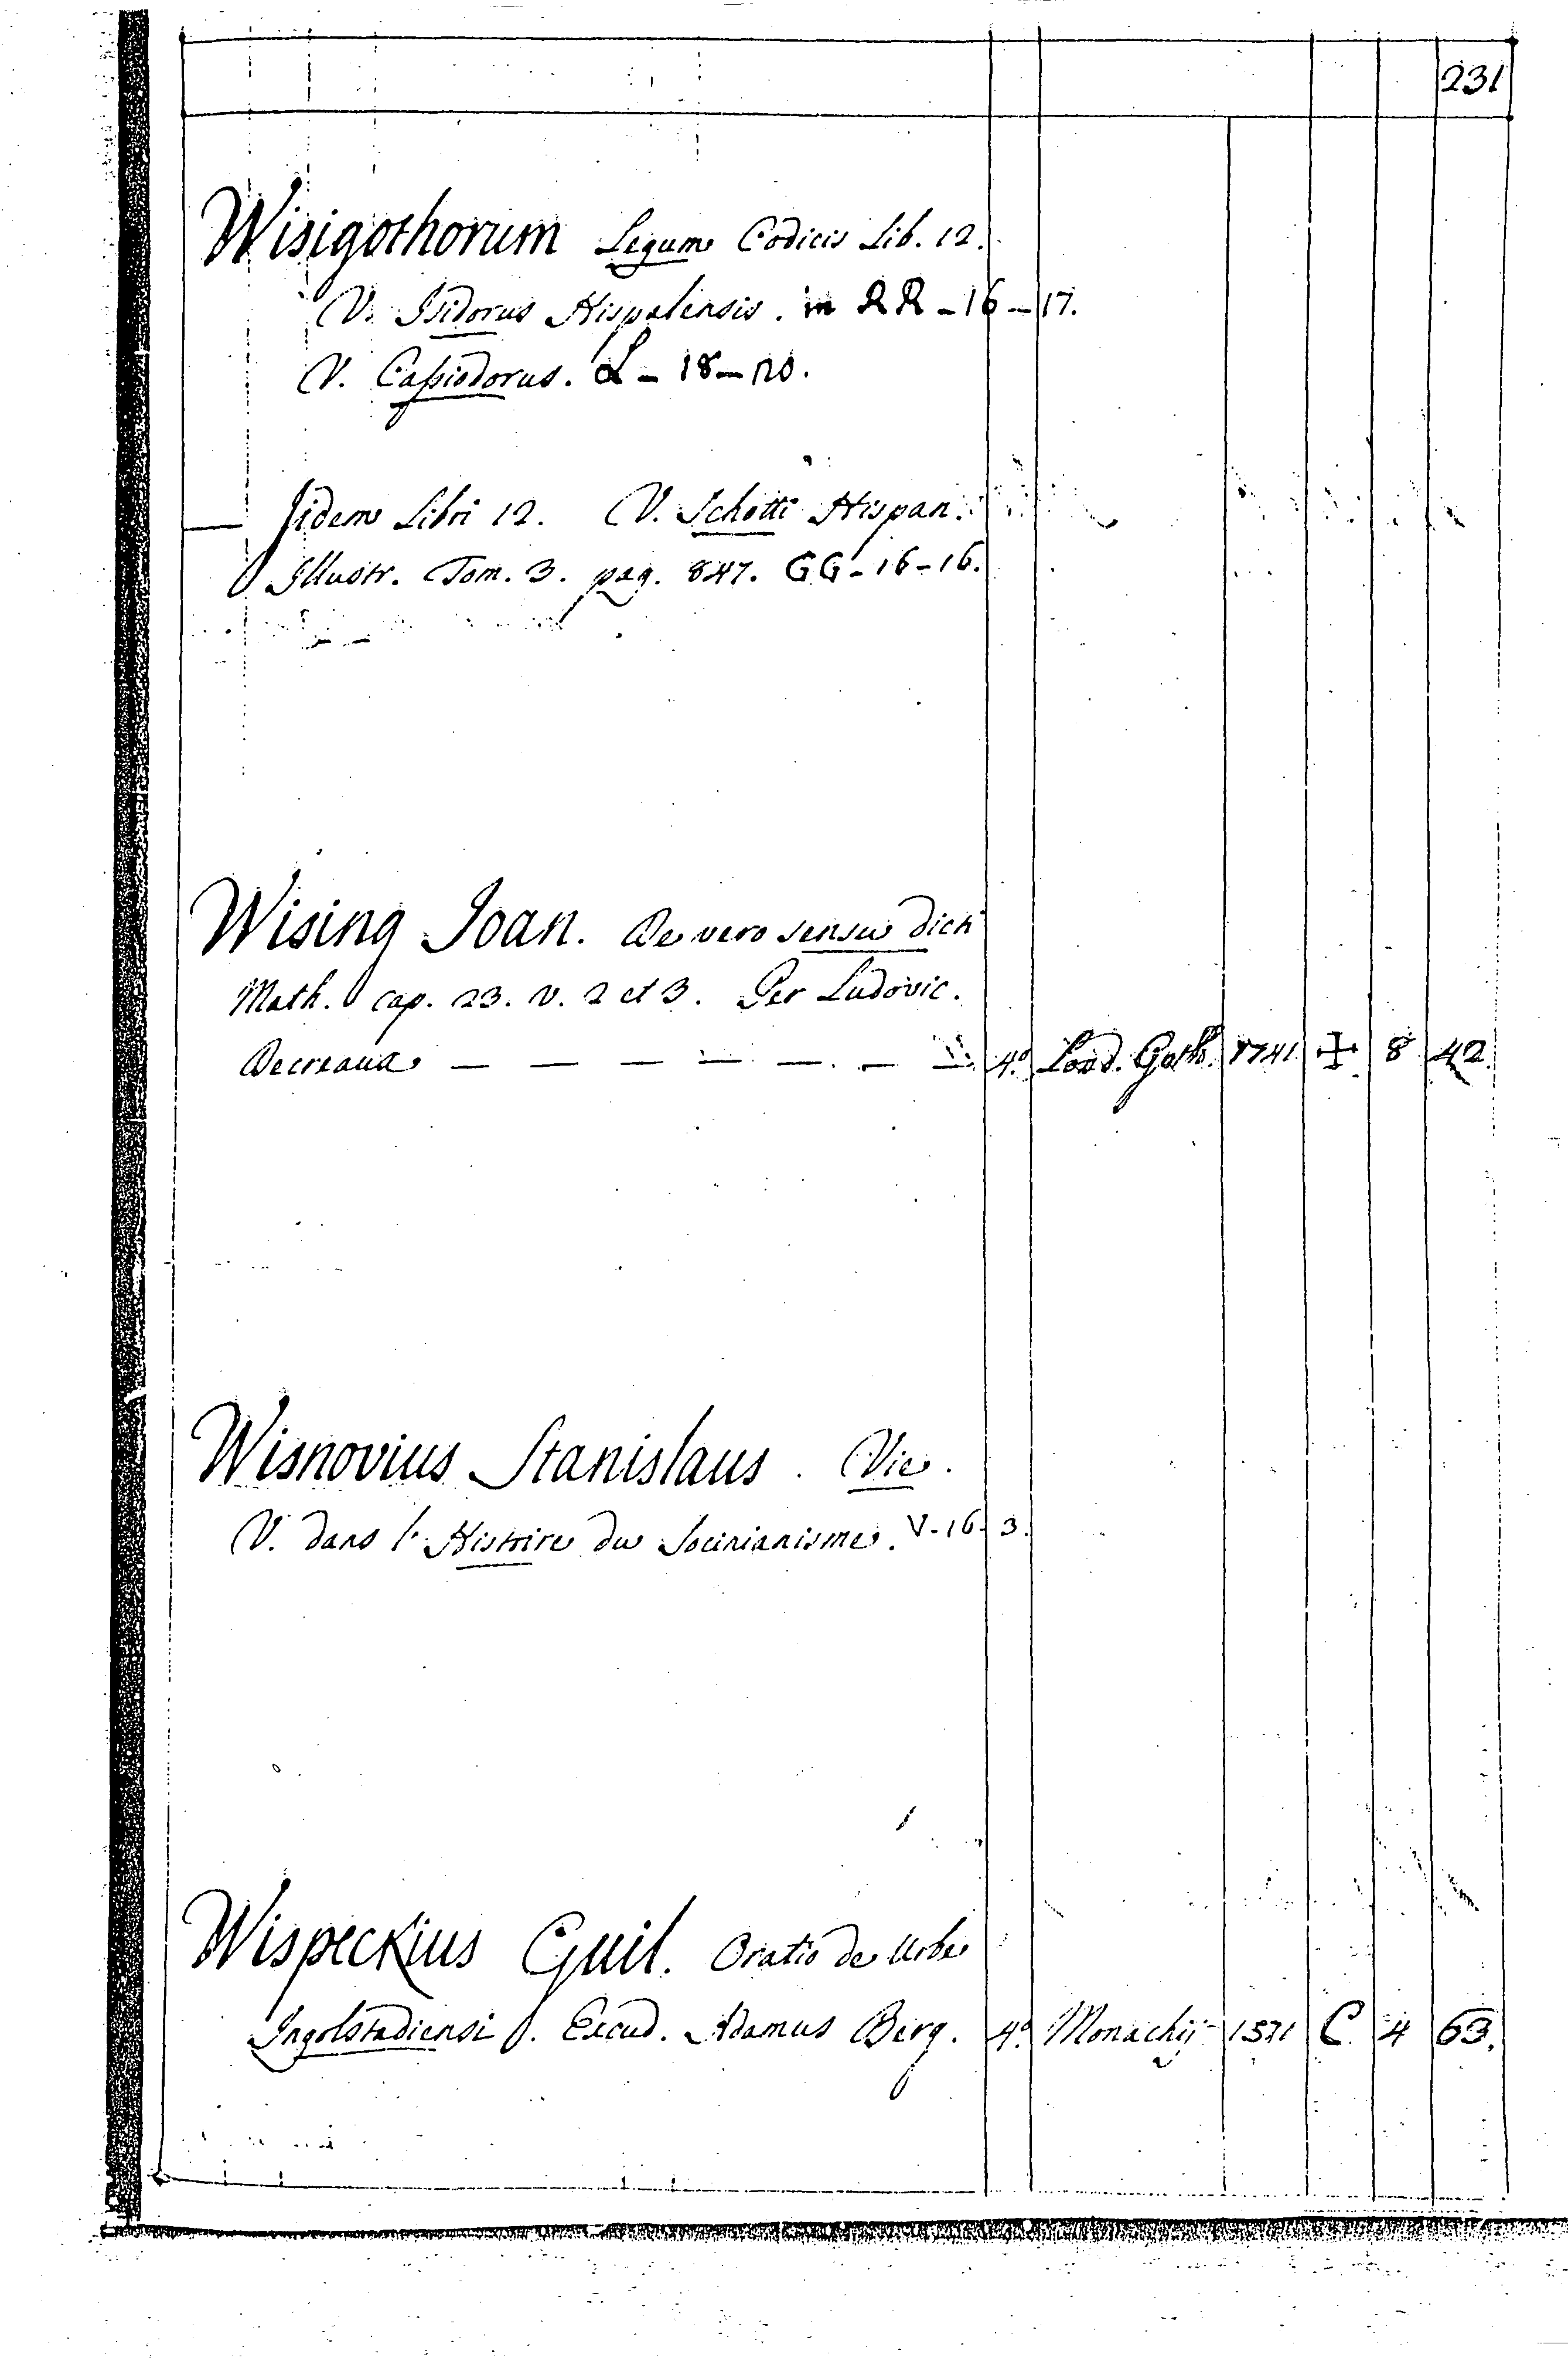 231
Wisigothorum Legum Codicis Lib. 12.
V. Isidorus Hispalensis. in RR - 16 - 17.
V. Cassiodorus. L - 18 - 20.
— Iidem Libri 12. V. Schotti Hispan.
Illustr. Tom. 3. pag. 847. GG - 16 - 16.
Wising Joan. De vero sensu dicti
Math. cap. 23. v. 2 et 3. Per Ludovic.
Decreaux — — — — — — — 4.º Lond. Goth. 1741 ✠ 8 42.
Wisnovius Stanislaus. Vie.
V. dans l'Histoire du Socinianisme. V - 16 - 3.
Wispeckius Guil. Oratio de Urbe
Ingolstadiensi. Excud. Adamus Berg. 4.º Monachij 1571 C. 4 63.